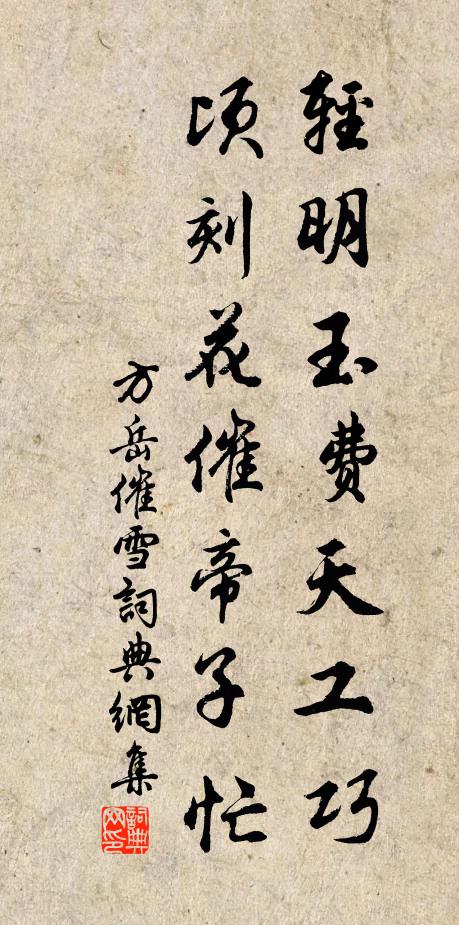 輕明玉費天工巧
頃刻花催帝子忙
方岳催雪詞典網集
詞典網印